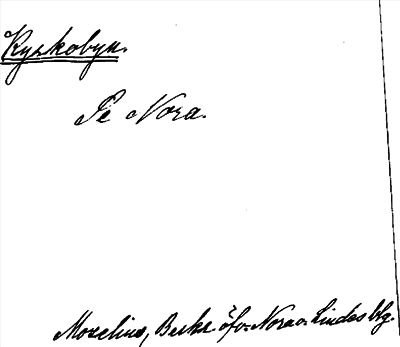 Kyrkobyn.
Se Nora.
Moselius, Beskr. öfv. Nora o. Lindes blg.